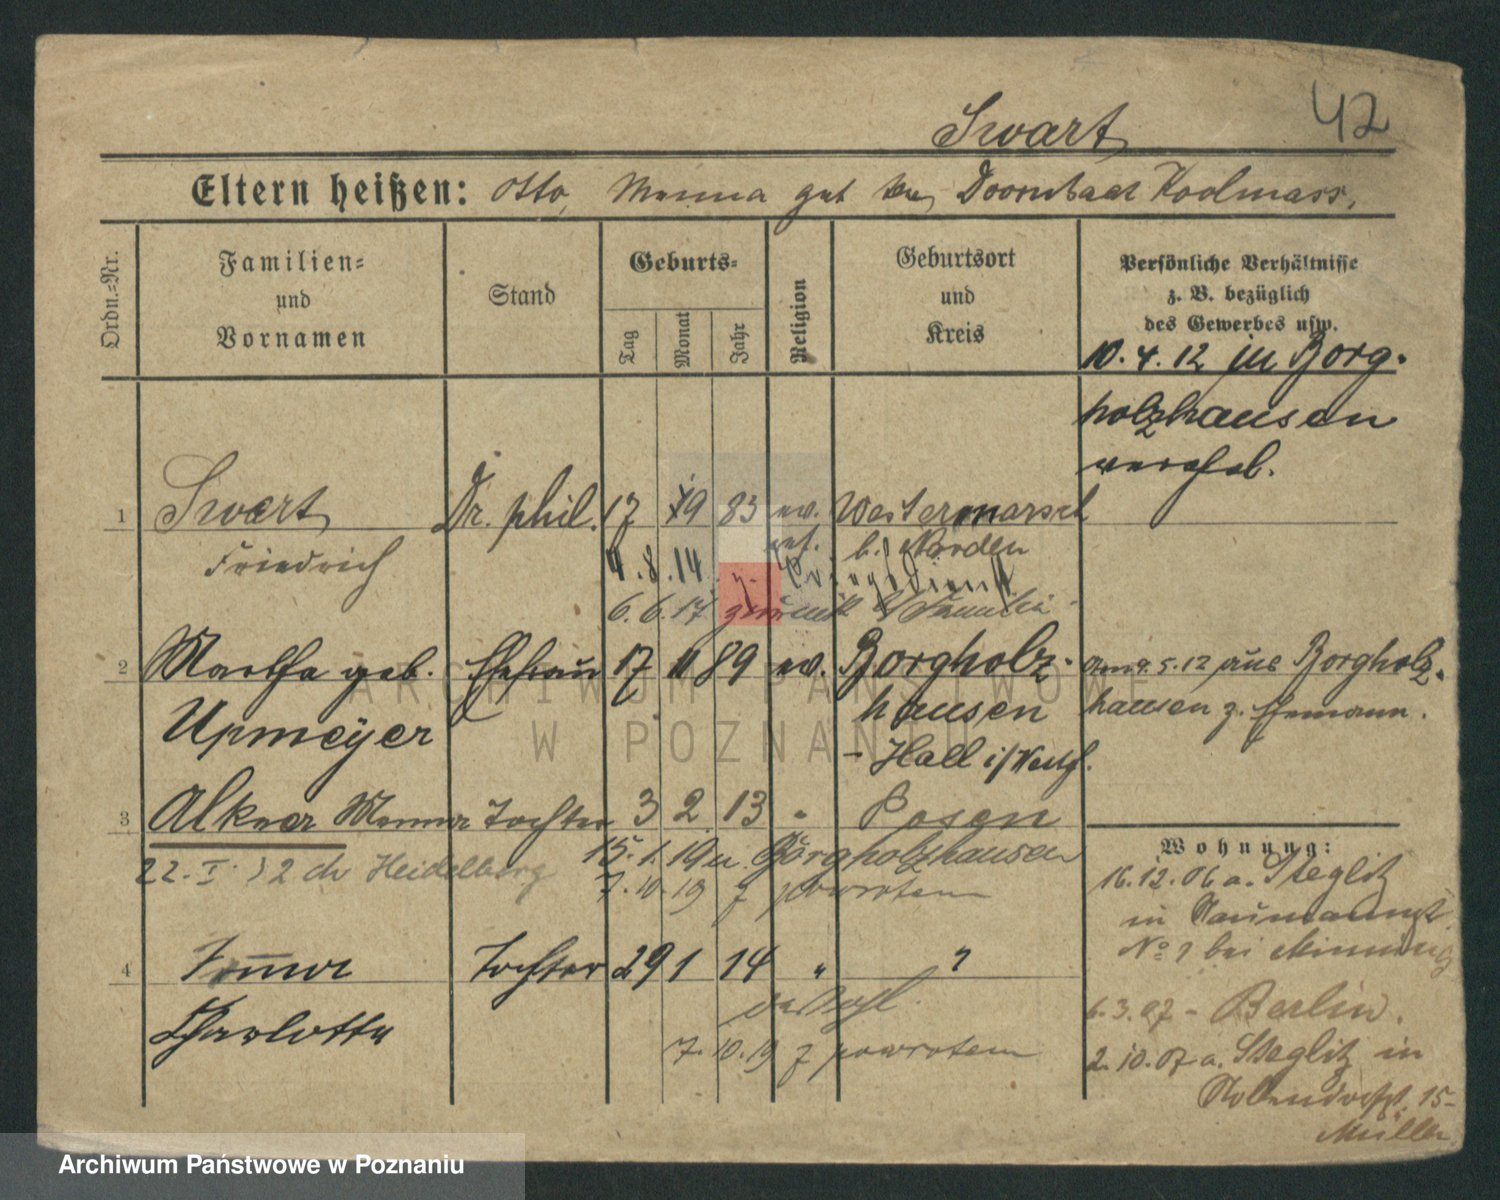 42
Swart
Eltern heißen: Otto, Menna geb. Doornkaat Koolmann.
Ordn.-Nr.
Familien- und Vornamen
Stand
Geburts-
Tag Monat Jahr
Religion
Geburtsort und Kreis
Persönliche Verhältnisse
z. B. bezüglich
des Gewerbes usw.
10.4.12 in Borg-
holzhausen
verehel.
1 Swart Dr. phil. 17 9 83 ev. Westermarsch
Friedrich ref. b. Norden
4.8.14 z. Kriegsdienst
6.6.17 zurück Familie
2 Martha geb. Ehefrau 17 11 89 ev. Borgholz- am 9.5.12 aus Borgholz-
Upmeyer hausen hausen z. Ehemann.
- Hall i/Westf.
3 Alkea Menna Tochter 3 2 13 " Posen
22. I. 2 Heidelberg 15.1.19 n. Borgholzhausen
7.10.19 z powrotem
4 Imma Tochter 29 1 14 " "
Charlotte
7.10.19 z powrotem
Wohnung:
16.12.06 a. Steglitz
in Naumannst.
No bei
6.3.07 - Berlin.
2.10.07 a. Steglitz in
15
Müller
ARCHIWUM PAŃSTWOWE
W POZNANIU
Archiwum Państwowe w Poznaniu